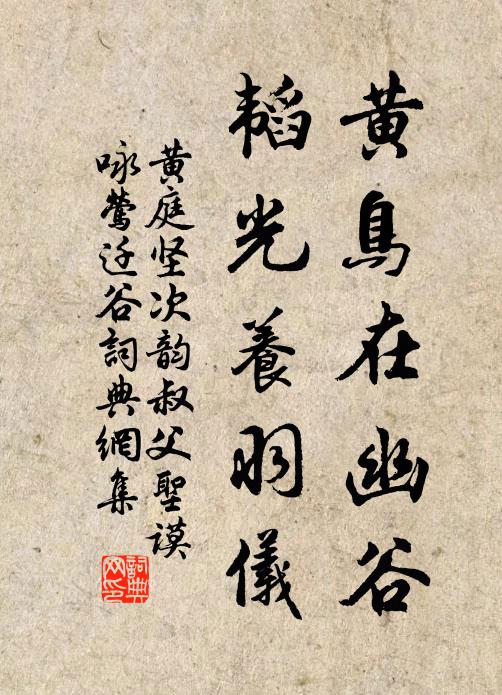 黄鳥在幽谷
韬光養羽儀
黄庭坚次韵叔父聖谟
咏鶯迁谷詞典網集
詞典網印